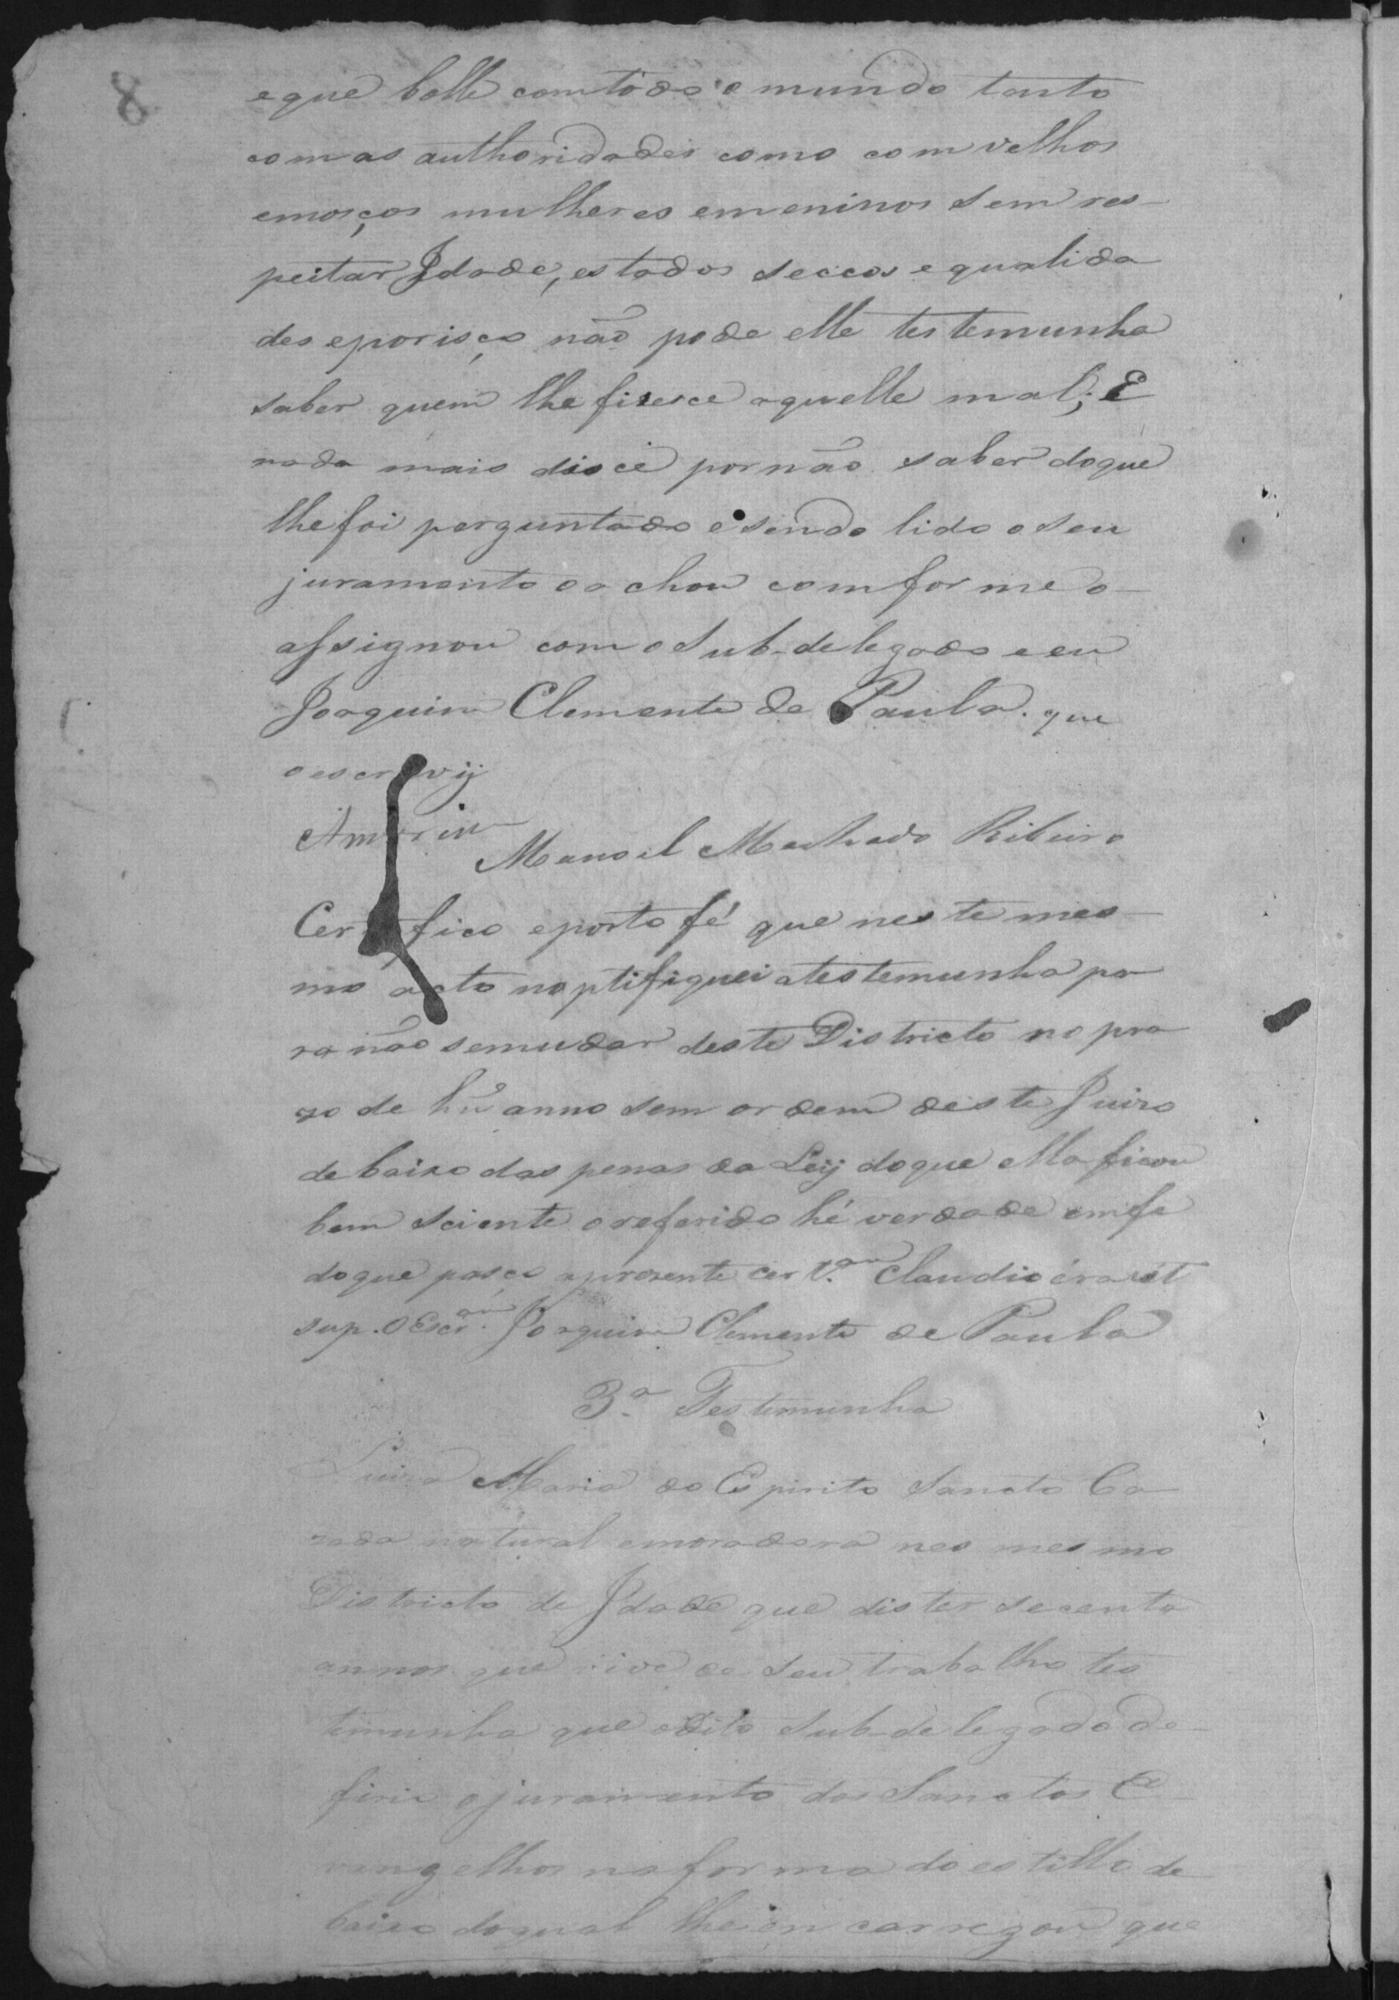 8
e que bolle com todo o mundo tanto
com as authoridades como com velhos
e mosços mulheres e meninos sem res-
peitar Jdade, estados seccos e qualida
des e por isço não pode elle testemunha
saber quem lhe fisesce aquelle mal; E
nada mais disce por não saber do que
lhe foi perguntado e sendo lido o seu
juramento o achou comforme o
assignou com o Sub-delegado e eu
Joaquim Clemente de Paula. que
o escrevij
Amorim
Manoel Machado Ribeiro
Certefico e porto fé que neste mes-
mo acto noptifiquei a testemunha pa
ra não se mudar deste Districto no pra
zo de hũ anno sem ordem deste Juizo
debaixo das penas da Leij do que ella ficou
bem sciente o referido hé verdade em fe
do que pasço a presente cert.am Claudio éra ut
sup. O Escr.am Joaquim Clemente de Paula
3.a Testimunha
Luiza Maria do Espirito Sancto Ca
zada natural e moradora nes mesmo
Districto de Jdade que dis ter secenta
annos que vive de seu trabalho tes
timunha que o dito Sub-delegado de-
firio o juramento dos Sanctos E
vangelhos na forma do estillo de
baixo do qual lhe en carregou que